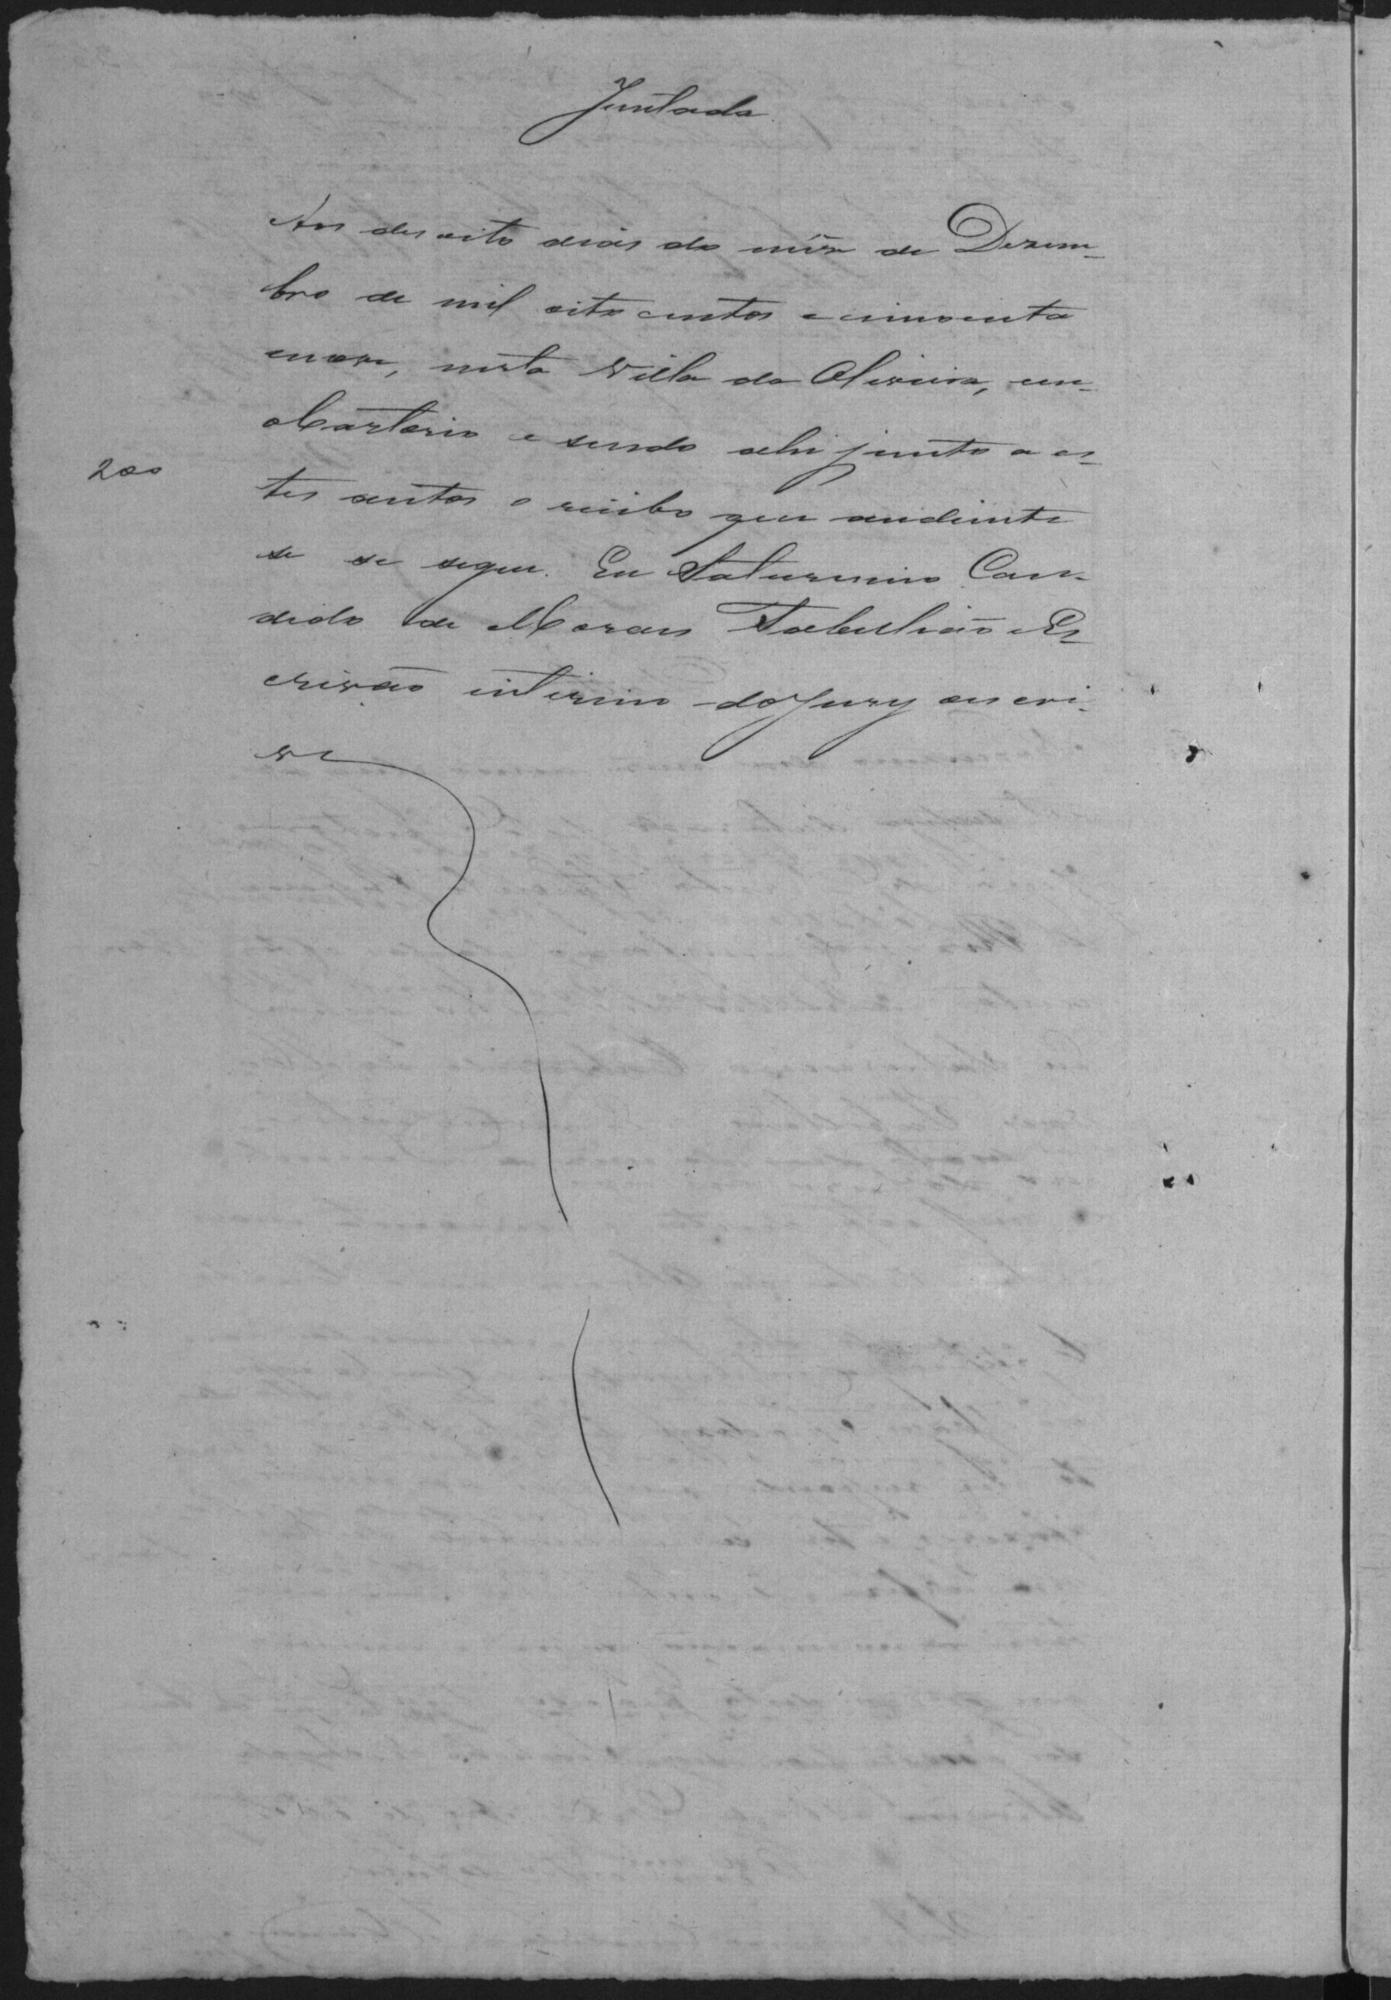 Juntada
Aos desoito dias do mês de Dezem-
bro de mil oito centos e cincoenta
enove, nesta Villa da Oliveira, em
Cartorio e sendo ahi junto a es-
200
tes autos o recibo que andiente
se se segue. Eu Saturnino Can-
dido de Moraes Tabelião Es-
crivão interino do Jury escri-
vi